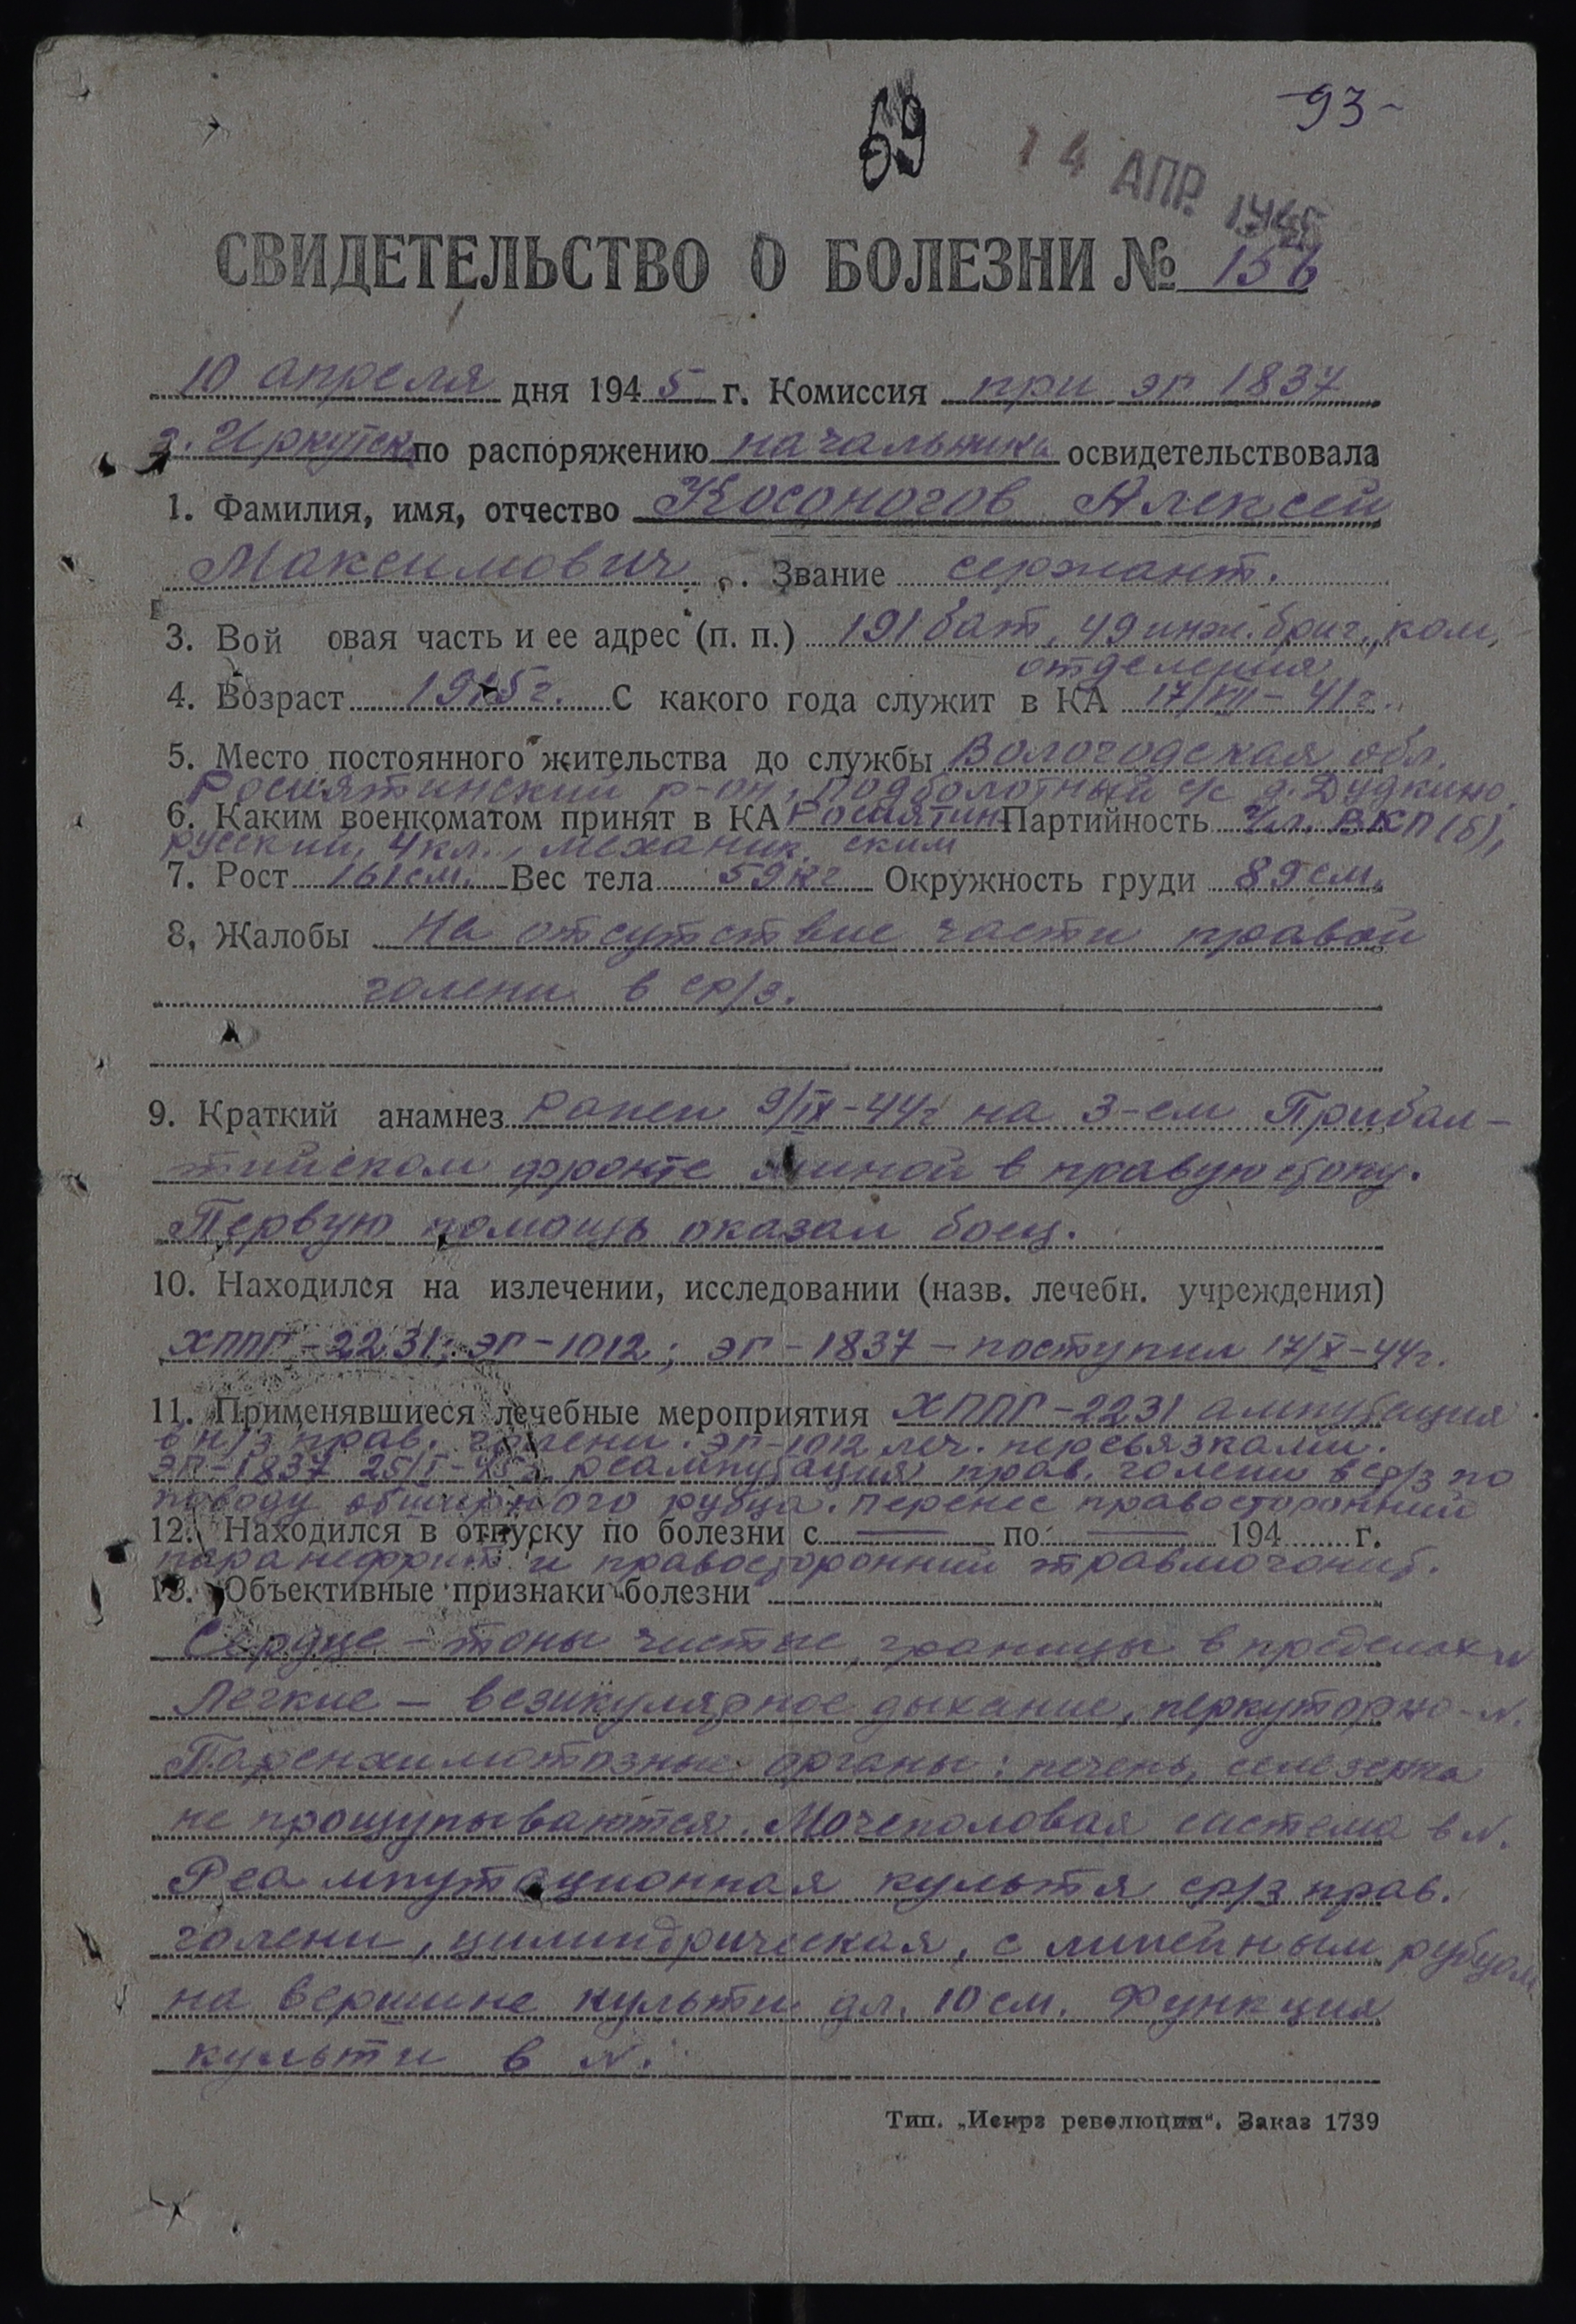 -93-
59
14 АПР. 1945
СВИДЕТЕЛЬСТВО О БОЛЕЗНИ № 156
10 апреля дня 1945 г. Комиссия при эг 1837
г. Иркутск по распоряжению начальника освидетельствовала
1. Фамилия, имя, отчество Косоногов Алексей
Максимович. Звание сержант.
3. Вой овая часть и ее адрес (п. п.) 191 бат, 49 инж. бриг., ком,
отделения
4. Возраст 1915 г. С какого года служит в КА 17/VII-41 г.
5. Место постоянного жительства до службы Вологодская обл.
Рослятинский р-он, Подболотный с/с д. Дудкино.
6. Каким военкоматом принят в КА Рослятин- Партийность Чл. ВКП(б),
русский, 4 кл., механик. ским
7. Рост 161 см. Вес тела 59 кг Окружность груди 89 см.
8, Жалобы На отсутствие части правой
голени в ср/з.
9. Краткий анамнез Ранен 9/IX-44 г на 3-ем Прибал-
тийском фронте миной в правую стопу.
Первую помощь оказал боец.
10. Находился на излечении, исследовании (назв. лечебн. учреждения)
ХППГ-2231; ЭГ-1012; ЭГ-1837 - поступил 17/X-44 г.
11. Применявшиеся лечебные мероприятия ХППГ-2231 ампутация
в н/з прав. голени. ЭГ-1012 леч. перевязками.
ЭГ-1837 25/I-45 г. реампутация прав. голени в ср/з по
поводу обширного рубца. Перенес правосторонний
12. Находился в отпуску по болезни с — по — 194 г.
паранефрит и правосторонний
13. Объективные признаки болезни
Сердце - тоны чистые, границы в пределах N
Легкие - везикулярное дыхание, перкуторно - N.
Паренхиматозные органы: печень, селезенка
не прощупываются. Мочеполовая система в N.
Реампутационная культя ср/з прав.
голени, цилиндрическая, с линейным рубцом
на вершине культи дл. 10 см. Функция
культи в N.
Тип. „Искра революции“. Заказ 1739